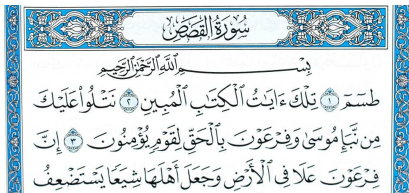 سُورَةُ القَصَصِ
بِسْمِ ٱللَّهِ ٱلرَّحْمَٰنِ ٱلرَّحِيمِ
طسٓمٓ ١ تِلْكَ ءَايَٰتُ ٱلْكِتَٰبِ ٱلْمُبِينِ ٢ نَتْلُوا۟ عَلَيْكَ
مِن نَّبَإِ مُوسَىٰ وَفِرْعَوْنَ بِٱلْحَقِّ لِقَوْمٍ يُؤْمِنُونَ ٣ إِنَّ
فِرْعَوْنَ عَلَا فِى ٱلْأَرْضِ وَجَعَلَ أَهْلَهَا شِيَعًا يَسْتَضْعِفُ